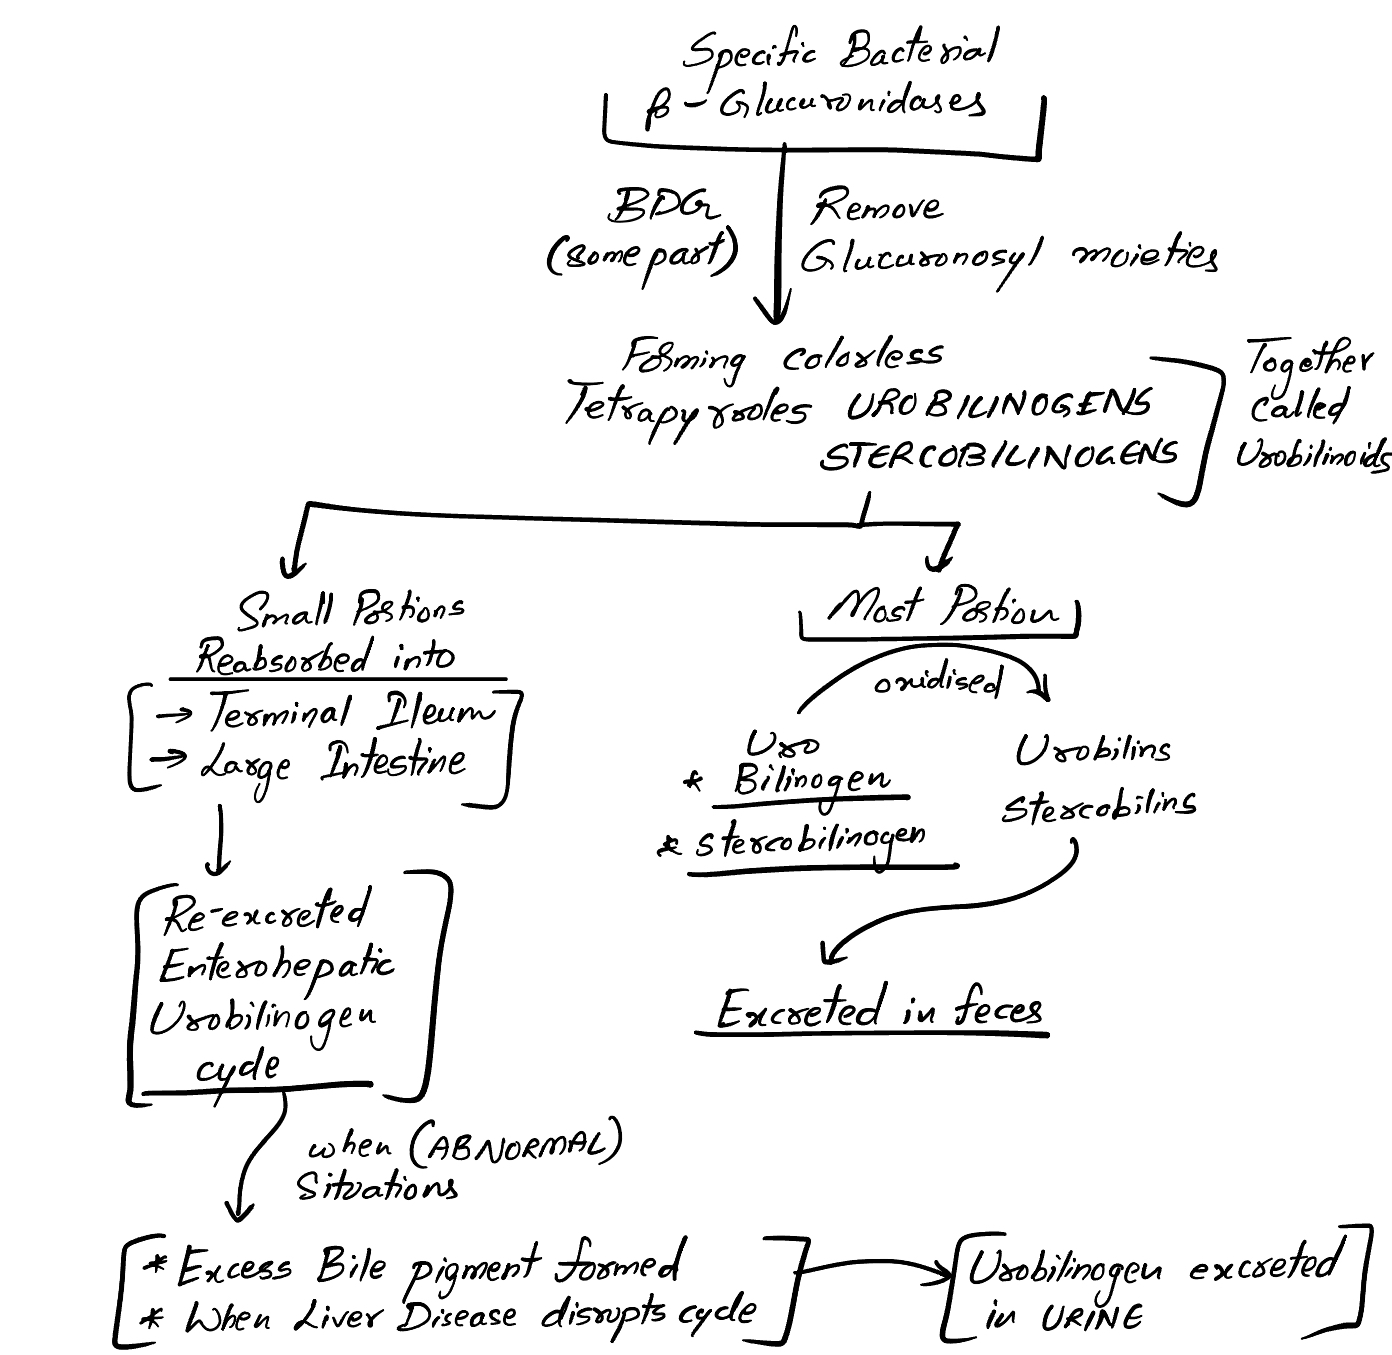 Specific Bacterial
β - Glucuronidases
BDG
(some part)
Remove
Glucuronosyl moieties
Forming colorless
Tetrapyrroles UROBILINOGENS
STERCOBILINOGENS
Together
called
Urobilinoids
Small Portions
Reabsorbed into
→ Terminal Ileum
→ Large Intestine
Re-excreted
Enterohepatic
Urobilinogen
cycle
when (ABNORMAL)
Situations
* Excess Bile pigment formed
* When Liver Disease disrupts cycle
Urobilinogen excreted
in URINE
Most Portion
oxidised
Uro
* Bilinogen
* stercobilinogen
Urobilins
Stercobilins
Excreted in feces